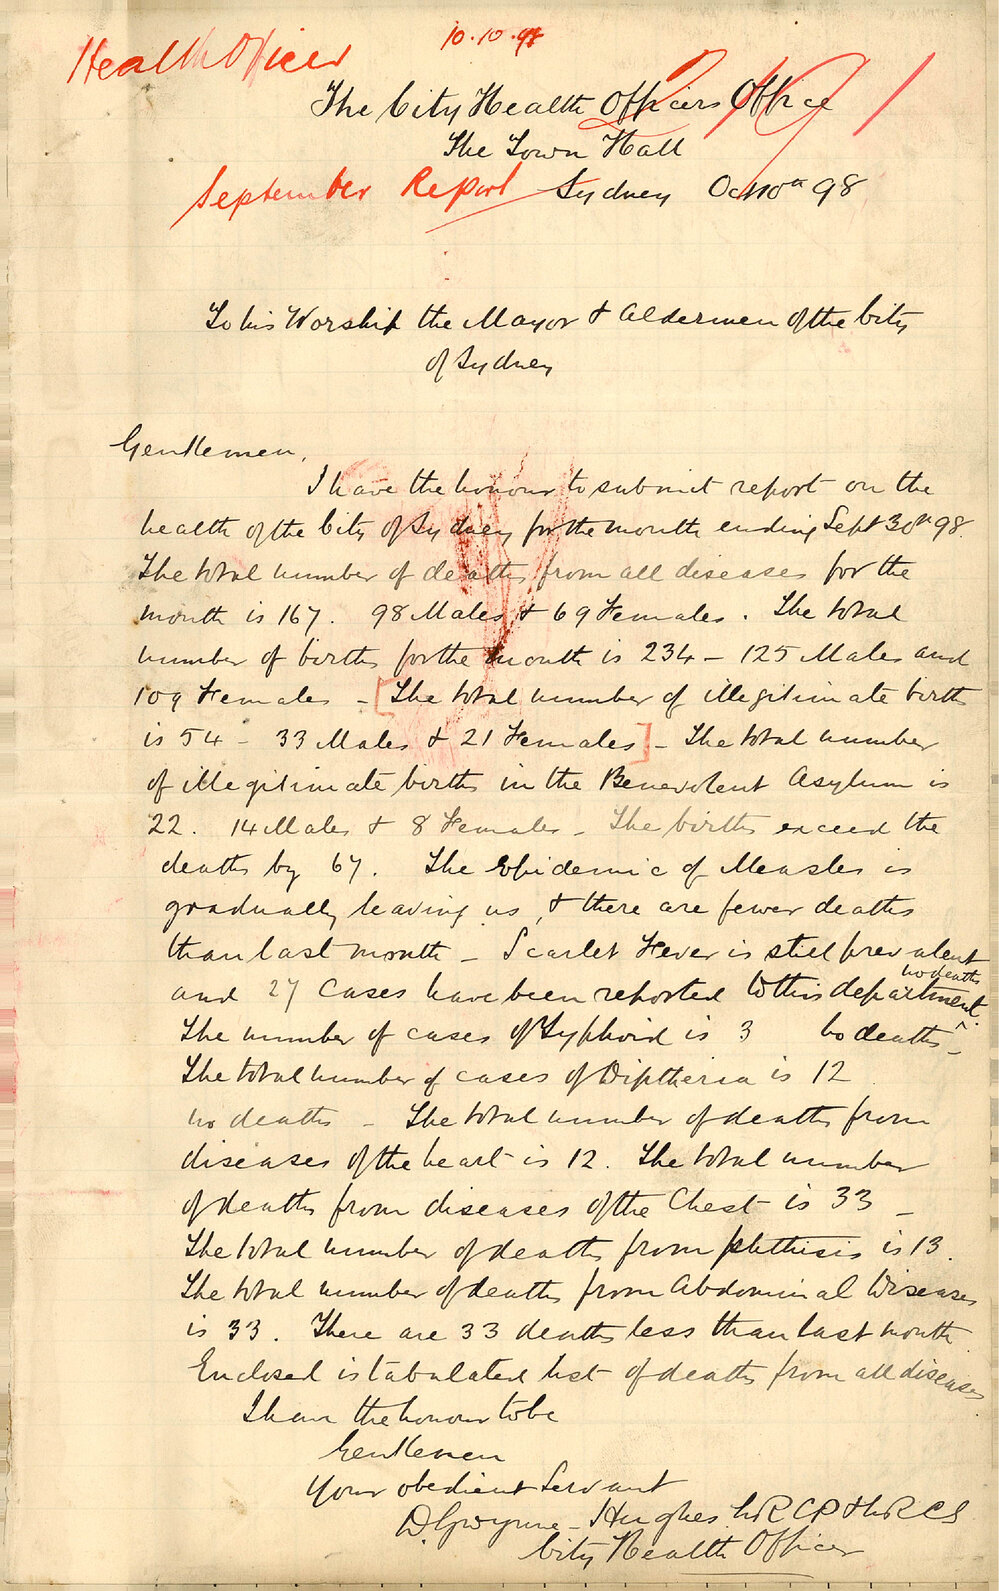 10.10.98
Health Officer
The City Health Officers Office
The Town Hall
September Report
Sydney Oct 10th 98
To his Worship the Mayor & Aldermen of the City
of Sydney
Gentlemen,
I have the honour to submit report on the
health of the City of Sydney for the month ending Sept 30th 98.
The total number of deaths from all diseases for the
month is 167. 98 Males & 69 Females. The total
number of births for the month is 234 - 125 Males and
109 Females - [The total number of illegitimate birth
is 54 - 33 Males & 21 Females] - The total number
of illegitimate births in the Benevolent Asylum is
22. 14 Males & 8 Females - The births exceed the
deaths by 67. The Epidemic of Measles is
gradually leaving us, & there are fewer deaths
than last month - Scarlet Fever is still prevalent
no deaths
and 27 cases have been reported to this department.
The number of cases of Typhoid is 3 no deaths -
The total number of cases of Diptheria is 12
no deaths - The total number of deaths from
diseases of the heart is 12. The total number
of deaths from diseases of the Chest is 33 -
The total number of deaths from phthisis is 13.
The total number of deaths from Abdominal Diseases
is 33. There are 33 deaths less than last month
Enclosed is tabulated list of deaths from all diseases
I have the honour to be
Gentlemen
Your obedient Servant
D. Gwynne-Hughes LRCP & LRCS
City Health Officer